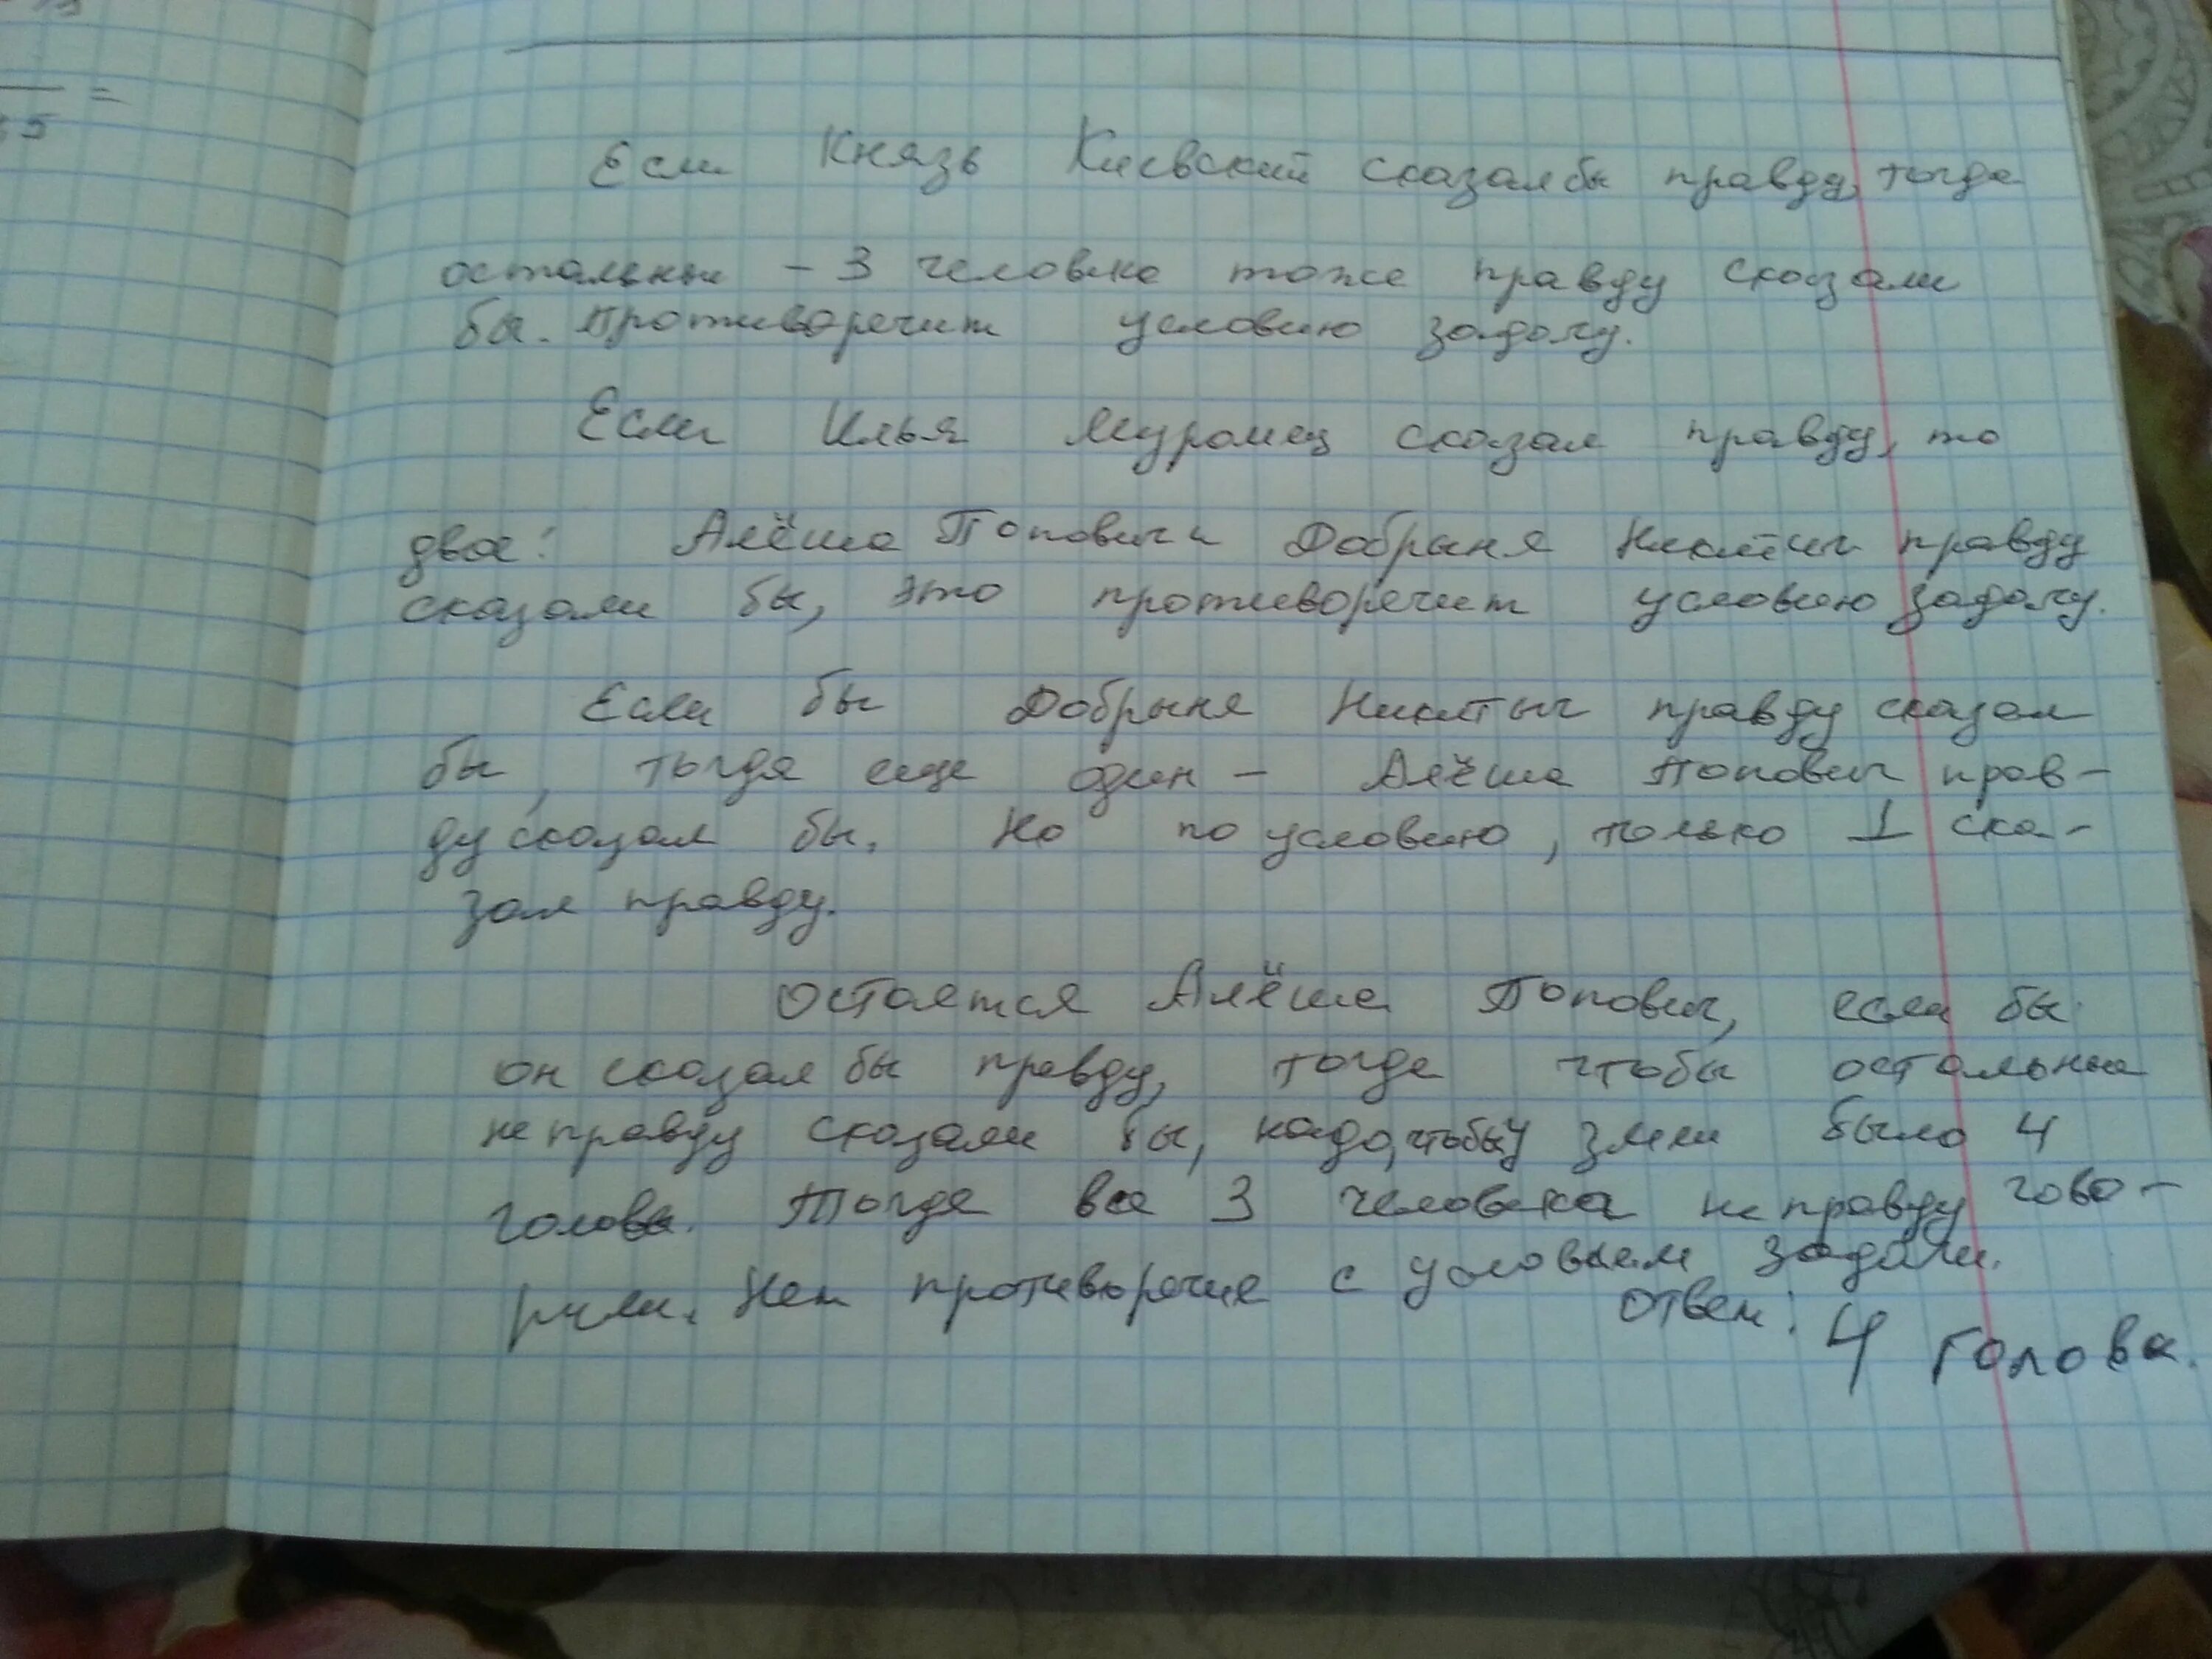 5 =
Если Князь Киевский сказал бы правду, тогда
остальные – 3 человека тоже правду сказали
бы. Противоречит условию задачу.
Если Илья Муромец сказал правду, то
двое: Алёша Попович и Добрыня Никитич правду
сказали бы, это противоречит условию задачу.
Если бы Добрыня Никитыч правду сказал
бы, тогда еще один – Алёша Попович прав-
ду сказал бы. Но по условию, только 1 ска-
зал правду.
Остается Алёша Попович, если бы
он сказал бы правду, тогда чтобы остальные
неправду сказали бы, надо, чтобы у змеи было 4
голова. Тогда все 3 человека неправду гово-
рили. Нет противоречие с условием задачи.
Ответ: 4 голова.